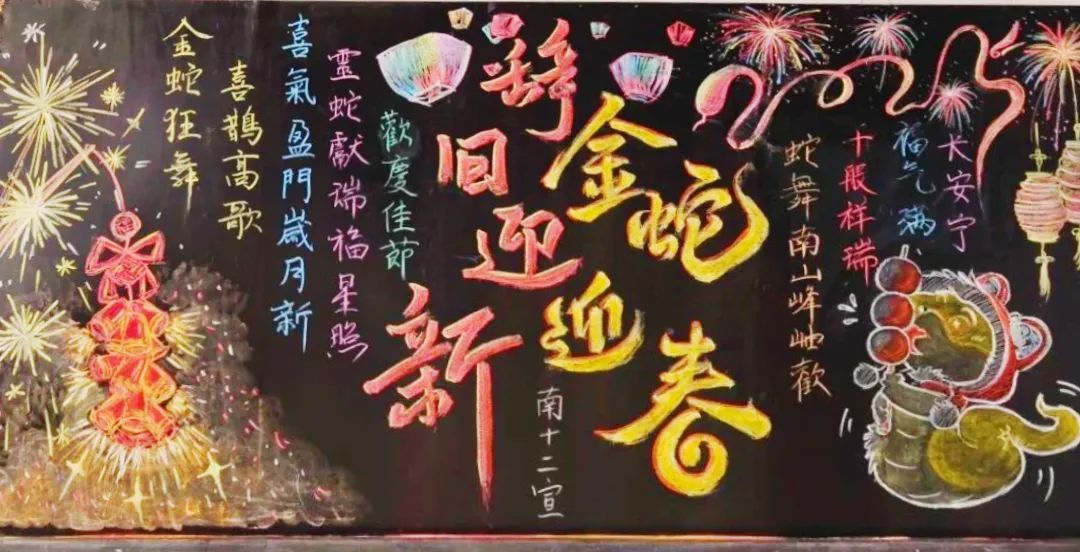 金蛇狂舞
喜鵲高歌
喜氣盈門歲月新
靈蛇獻瑞福星照
歡慶佳節
辭旧迎新
金蛇迎春
南十二宣
蛇舞南山峰岫歡
十般祥瑞
福气满
长安宁